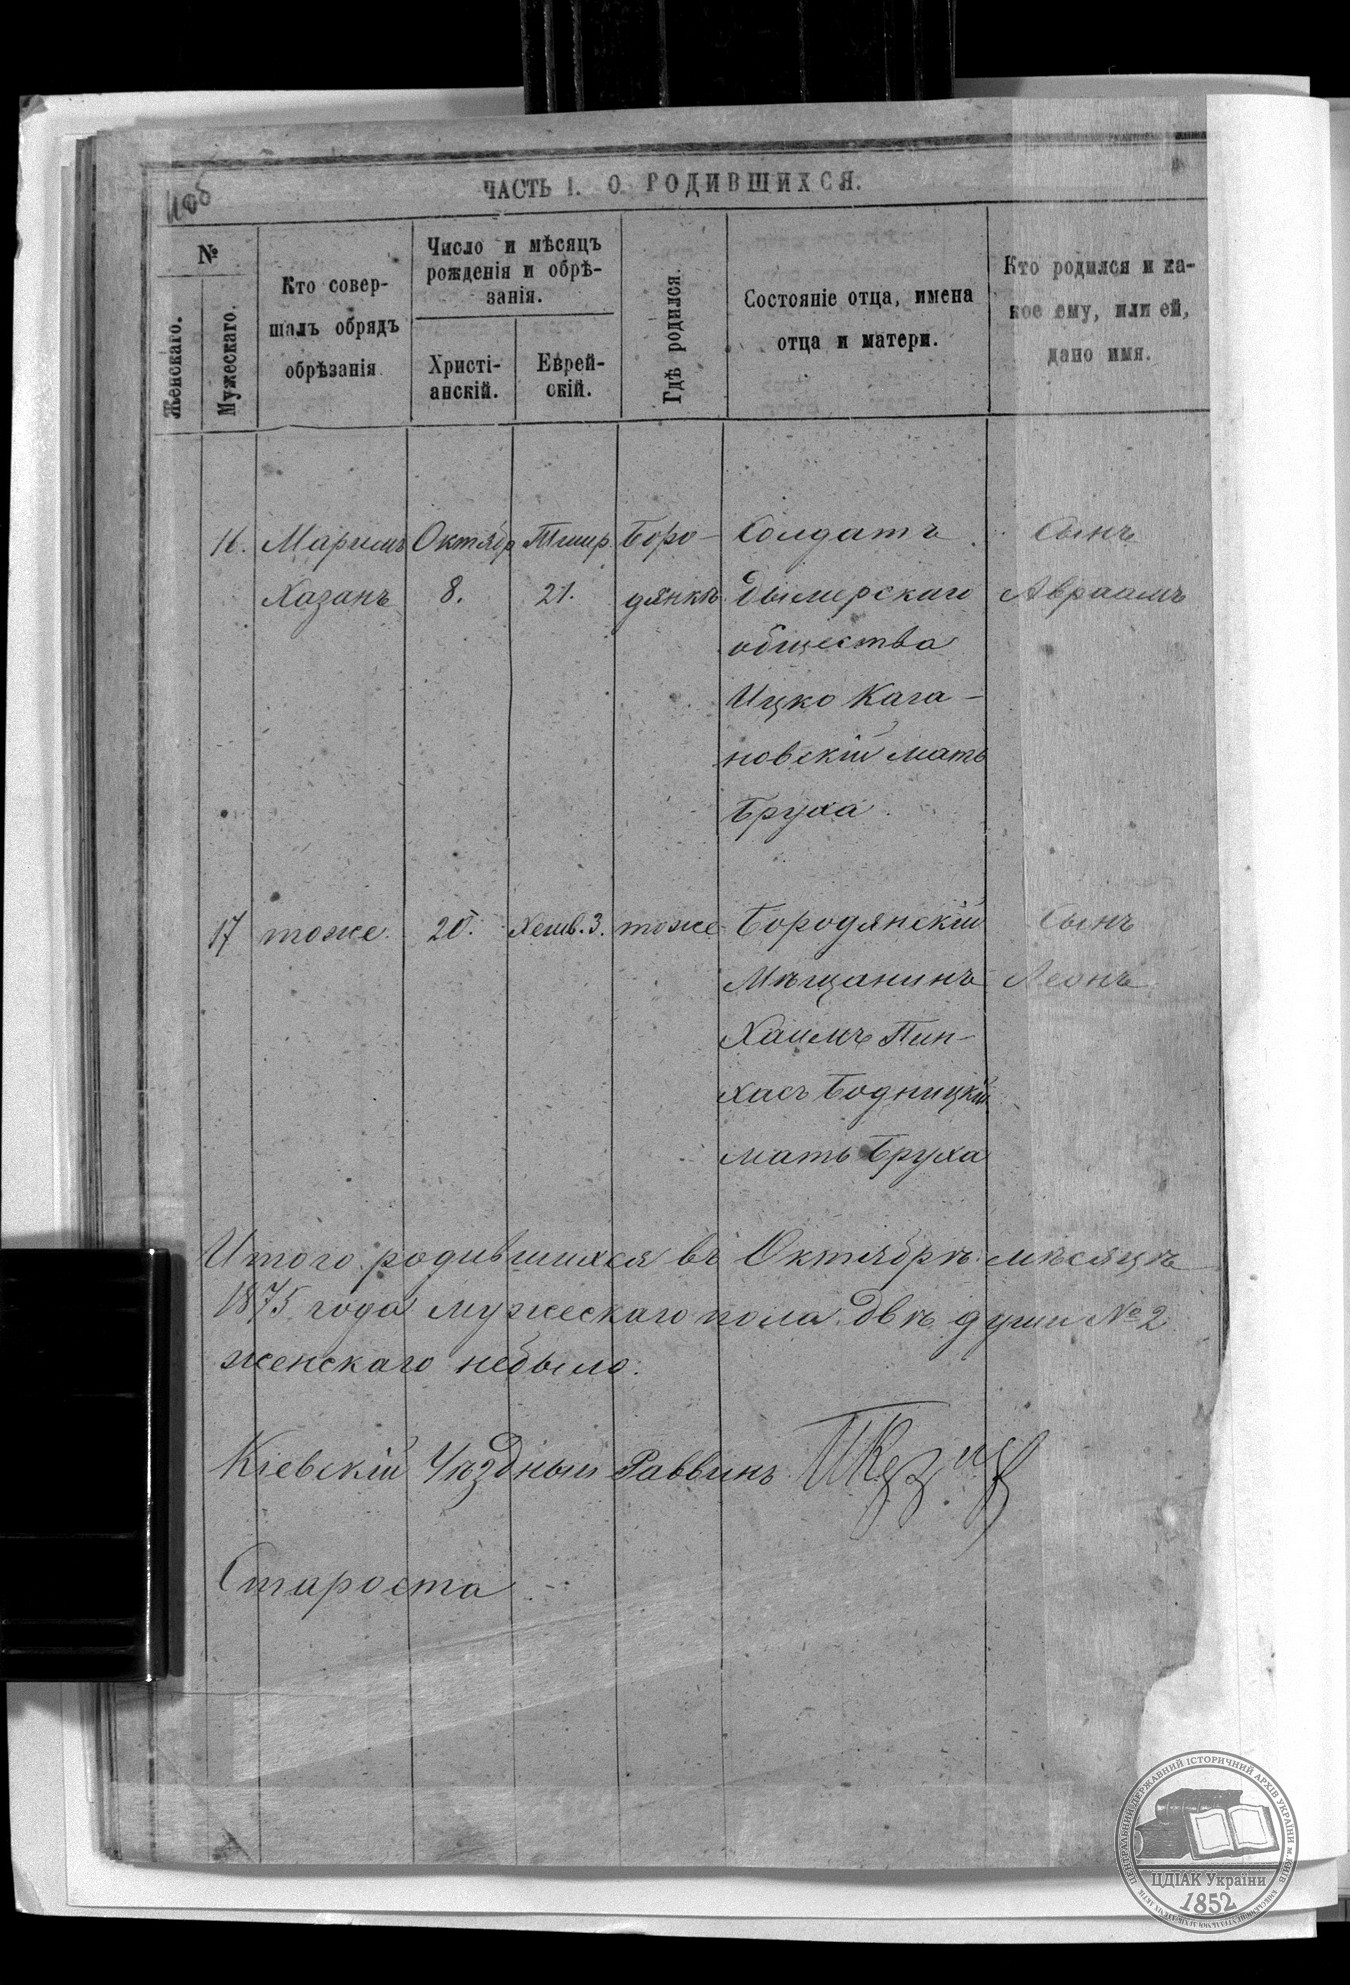 ЧАСТЬ I. О РОДИВШИХСЯ.
№
Женскаго.
Мужескаго.
Кто совер-
шалъ обрядъ
обрѣзанія
Число и мѣсяцъ
рожденія и обрѣ-
занія.
Христі-
анскій.
Еврей-
скій.
Гдѣ родился.
Состояніе отца, имена
отца и матери.
Кто родился и ка-
кое ему, или ей,
дано имя.
16. Октябр Тишр Боро- Солдатъ Сынъ
Хазанъ 8. 21. дянкѣ Дымерскаго Авраамъ
общества
Ицко Кага-
новскій мать
Бруха
17 тоже 20. Хешв. 3. тоже Бородянскій Сынъ
Мѣщанинъ Леонъ
Хаимъ Пин-
хасъ Бодницкій
мать Бруха
Итого родившихся въ Октябрѣ мѣсяцѣ
1875 года мужескаго пола двѣ души № 2
женскаго небыло.
Кіевскій Уѣздный Раввинъ
Староста
ЦЕНТРАЛЬНИЙ ДЕРЖАВНИЙ ІСТОРИЧНИЙ АРХІВ УКРАЇНИ м.КИЇВ
ЦДІАК України
1852